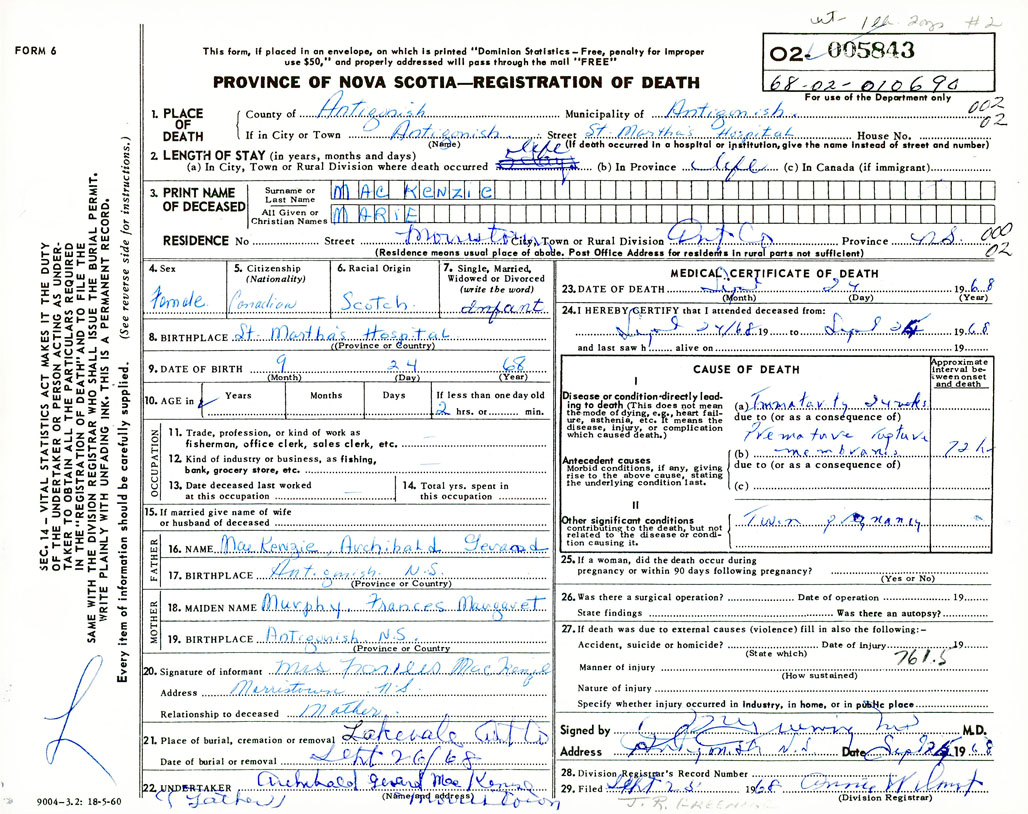 wt- 1 lb. 2 ozs #2
FORM 6
This form, if placed in an envelope, on which is printed "Dominion Statistics – Free, penalty for improper
use $50," and properly addressed will pass through the mail "FREE"
02- 005843
68-02-010690
For use of the Department only
PROVINCE OF NOVA SCOTIA—REGISTRATION OF DEATH
002
02
1. PLACE OF DEATH
County of Antigonish Municipality of Antigonish
If in City or Town Antigonish Street St. Martha's Hospital House No.
(Name) (If death occurred in a hospital or institution, give the name instead of street and number)
2. LENGTH OF STAY (in years, months and days)
(a) In City, Town or Rural Division where death occurred life (b) In Province life (c) In Canada (if immigrant)
3. PRINT NAME OF DECEASED
Surname or Last Name MAC KENZIE
All Given or Christian Names MARIE
RESIDENCE No Street Morristown City, Town or Rural Division Ant. Co Province N.S.
000
02
(Residence means usual place of abode. Post Office Address for residents in rural parts not sufficient)
4. Sex
Female
5. Citizenship
(Nationality)
Canadian
6. Racial Origin
Scotch
7. Single, Married, Widowed or Divorced
(write the word)
Infant
8. BIRTHPLACE St. Martha's Hospital
(Province or Country)
9. DATE OF BIRTH 9 24 68
(Month) (Day) (Year)
10. AGE in Years Months Days If less than one day old
2 hrs. or min.
OCCUPATION
11. Trade, profession, or kind of work as
fisherman, office clerk, sales clerk, etc.
12. Kind of industry or business, as fishing,
bank, grocery store, etc.
13. Date deceased last worked
at this occupation
14. Total yrs. spent in
this occupation
15. If married give name of wife
or husband of deceased
FATHER
16. NAME MacKenzie, Archibald Gerard
17. BIRTHPLACE Antigonish N.S.
(Province or Country)
MOTHER
18. MAIDEN NAME Murphy, Frances Margaret
19. BIRTHPLACE Antigonish, N.S.
(Province or Country)
20. Signature of informant Mrs Frances MacKenzie
Address Morristown N.S.
Relationship to deceased Mother
21. Place of burial, cremation or removal Lakevale Ant Co
Date of burial or removal Sept 26/68
22. UNDERTAKER Archibald Gerard MacKenzie
(Name and address)
(Father) Morristown
9004-3.2: 18-5-60
MEDICAL CERTIFICATE OF DEATH
23. DATE OF DEATH Sept 24 1968
(Month) (Day) (Year)
24. I HEREBY CERTIFY that I attended deceased from:
Sept 24/68 19 to Sept 24 1968
and last saw h alive on 19
CAUSE OF DEATH
Approximate interval between onset and death
I
Disease or condition directly leading to death (This does not mean the mode of dying, e.g., heart failure, asthenia, etc. It means the disease, injury, or complication which caused death.)
(a) Immaturity
due to (or as a consequence of)
Premature rupture
(b) membranes 72 h
due to (or as a consequence of)
(c)
Antecedent causes
Morbid conditions, if any, giving rise to the above cause, stating the underlying condition last.
II
Other significant conditions
contributing to the death, but not related to the disease or condition causing it.
Twin pregnancy
25. If a woman, did the death occur during
pregnancy or within 90 days following pregnancy?
(Yes or No)
26. Was there a surgical operation? Date of operation 19
State findings Was there an autopsy?
27. If death was due to external causes (violence) fill in also the following:–
Accident, suicide or homicide? Date of injury 19
(State which)
761.5
Manner of injury
(How sustained)
Nature of injury
Specify whether injury occurred in industry, in home, or in public place
Signed by M.D.
Address Antigonish N.S. Date Sept 1968
28. Division Registrar's Record Number
29. Filed Sept 25 1968
(Division Registrar)
SEC. 14 – VITAL STATISTICS ACT MAKES IT THE DUTY
OF THE UNDERTAKER OR PERSON ACTING AS UNDER-
TAKER TO OBTAIN ALL THE PARTICULARS REQUIRED
IN THE "REGISTRATION OF DEATH" AND TO FILE THE
SAME WITH THE DIVISION REGISTRAR WHO SHALL ISSUE THE BURIAL PERMIT.
WRITE PLAINLY WITH UNFADING INK. THIS IS A PERMANENT RECORD.
Every item of information should be carefully supplied. (See reverse side for instructions.)